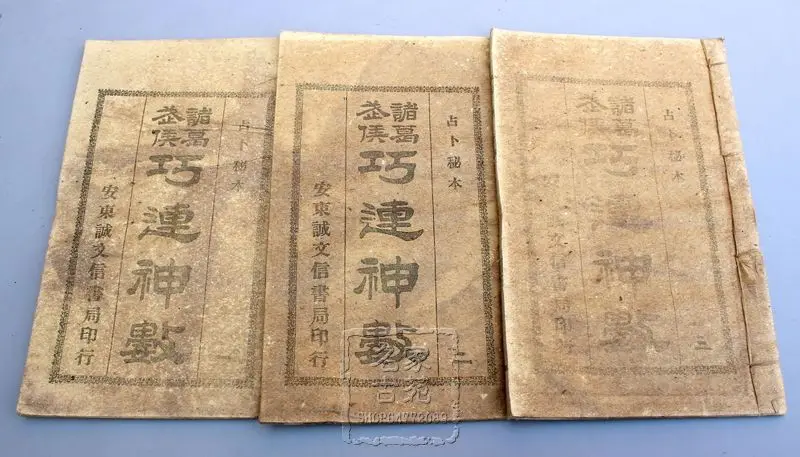 占卜秘本
諸葛
武侯
巧連神數
一
安東誠文信書局印行
占卜秘本
諸葛
武侯
巧連神數
二
安東誠文信書局印行
占卜秘本
諸葛
武侯
巧連神數
三
文信書局印